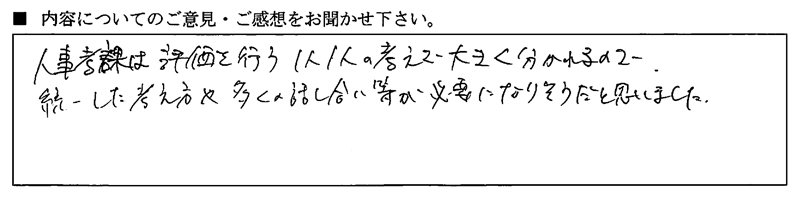 ■ 内容についてのご意見・ご感想をお聞かせ下さい。
人事考課は評価を行う1人1人の考えで大きく分かれるので、
統一した考え方や多くの話し合い等が必要になりそうだと思いました。